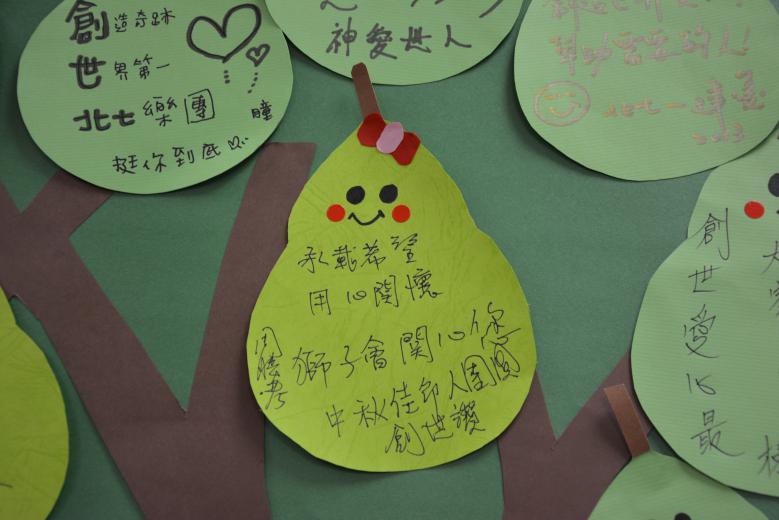 創造奇跡
世界第一
北七樂團
瞳
挺你到底
神愛世人
幫助需要的人!
承載希望
用心関懷
獅子會関心您
中秋佳節人團圓
創世讚
創世愛心最